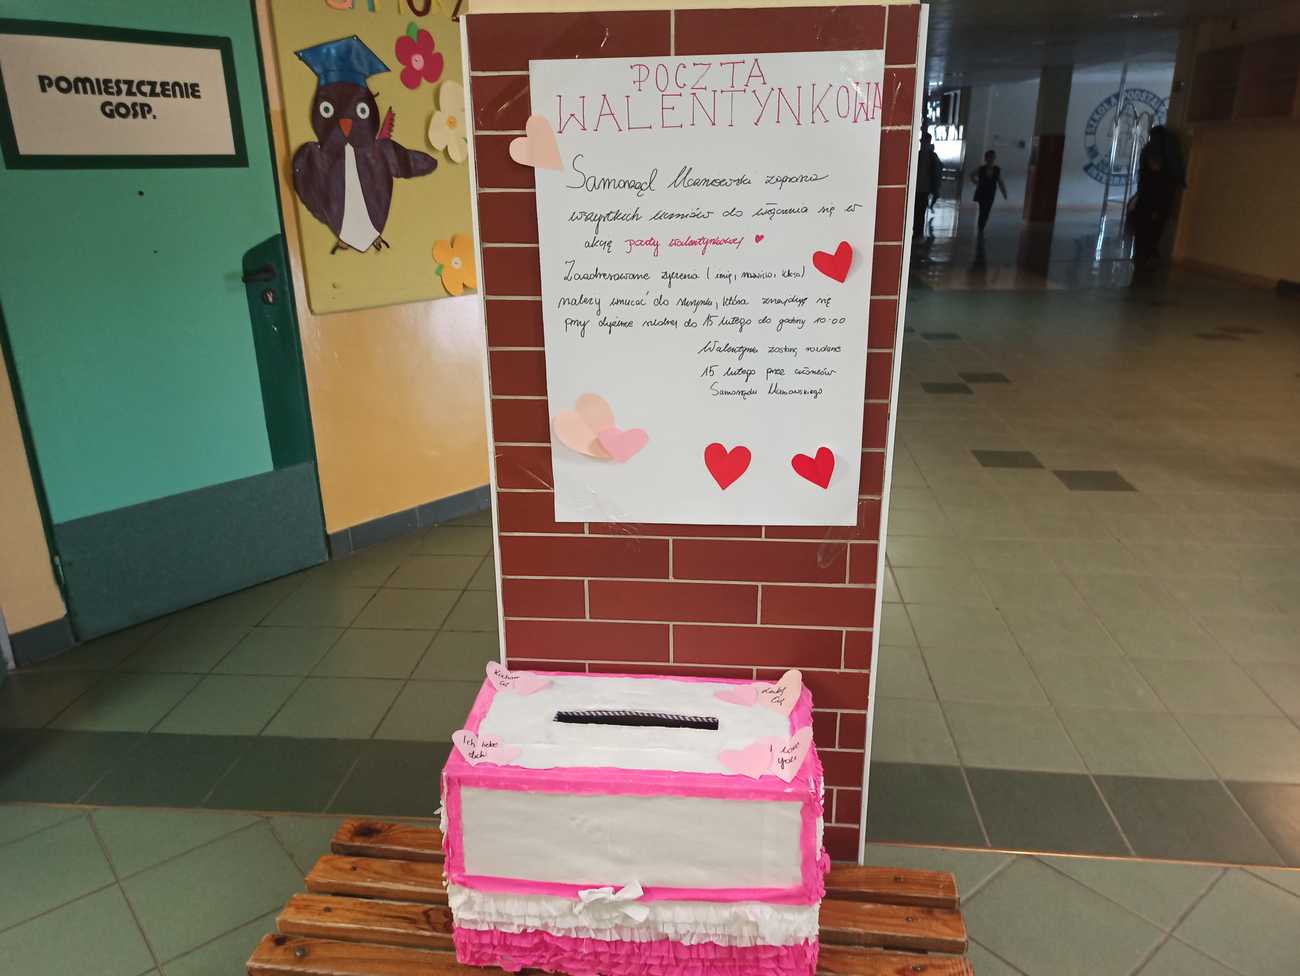 POMIESZCZENIE
GOSP.
POCZTA
WALENTYNKOWA
Samorząd Uczniowski zaprasza
wszystkich uczniów do włączenia się w
akcję poczty walentynkowej
Zaadresowane życzenia (imię, nazwisko, klasa)
należy wrzucać do skrzynki, która znajduje się
przy dyżurce szkolnej do 15 lutego do godziny 10:00
Walentynki zostaną rozdane
15 lutego przez członków
Samorządu Uczniowskiego
Kocham
Cię
Lubię
Cię
Ich liebe
dich
I love
you
SZKOŁA PODSTAW